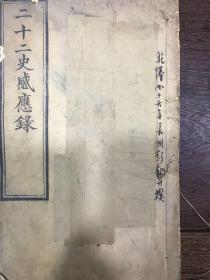 二十二史感應錄
乾隆四十六年長洲彭